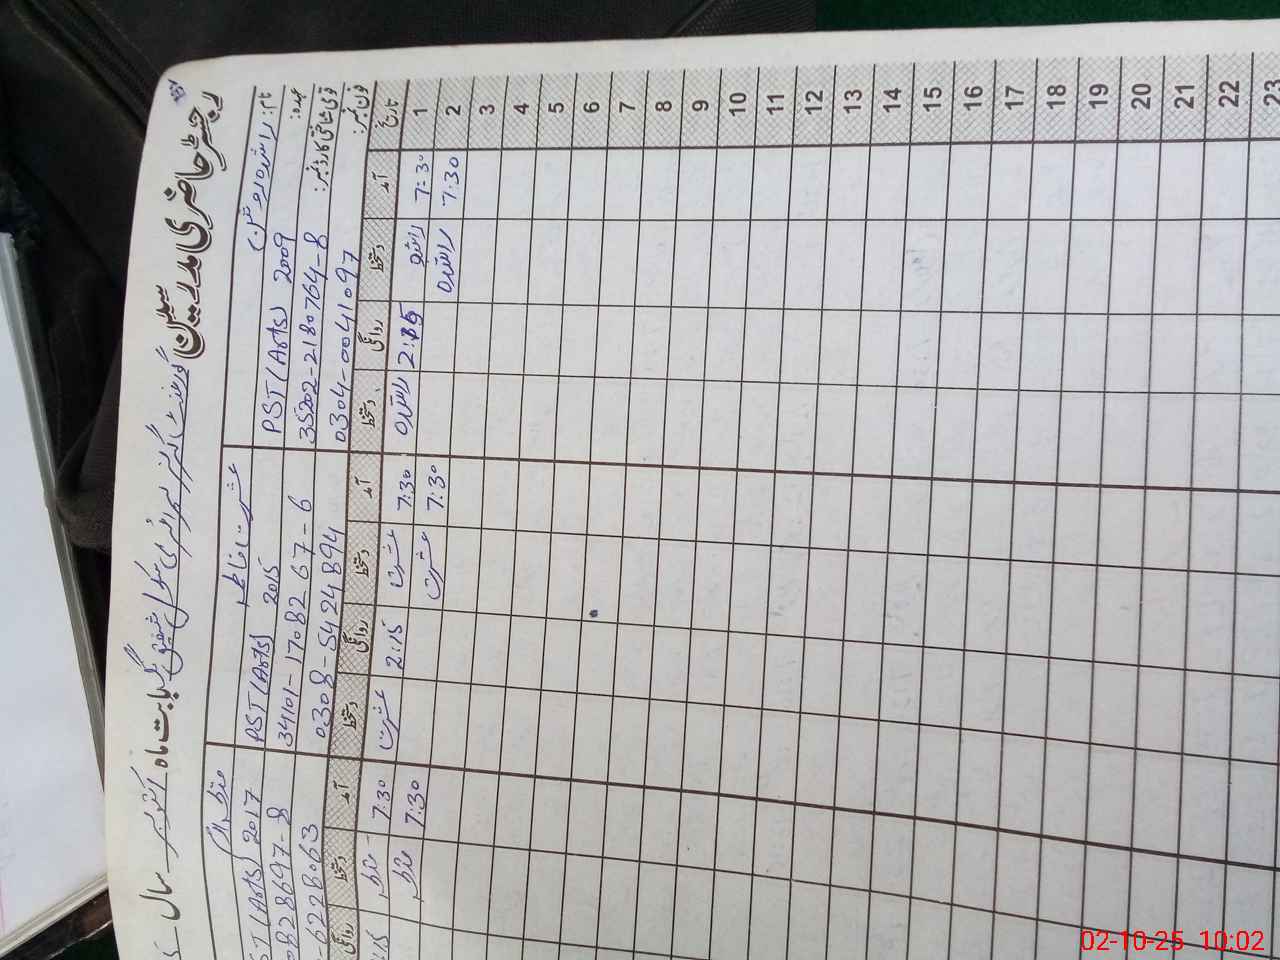 رجسٹر حاضری مدرسین گورنمنٹ گرلز پرائمری سکول شفیق بابت ماہ اکتوبر سال
نام: راشدہ روشن
عہدہ: PST (Arts) 2009
قومی شناختی کارڈ نمبر: 35202-2180764-8
فون نمبر: 0304-0041097
عشرت فاطمہ
PST (Arts) 2015
34101-1708267-6
0308-5424894
ST (Arts) 2017
0828697-8
-6228063
تاریخ آمد دستخط روانگی دستخط آمد دستخط روانگی دستخط آمد دستخط روانگی
1 7:30 راشدہ 2:15 راشدہ 7:30 عشرت 2:15 عشرت 7:30 :15
2 7:30 راشدہ 7:30 عشرت 7:30
3
4
5
6
7
8
9
10
11
12
13
14
15
16
17
18
19
20
21
22
23
02-10-25 10:02